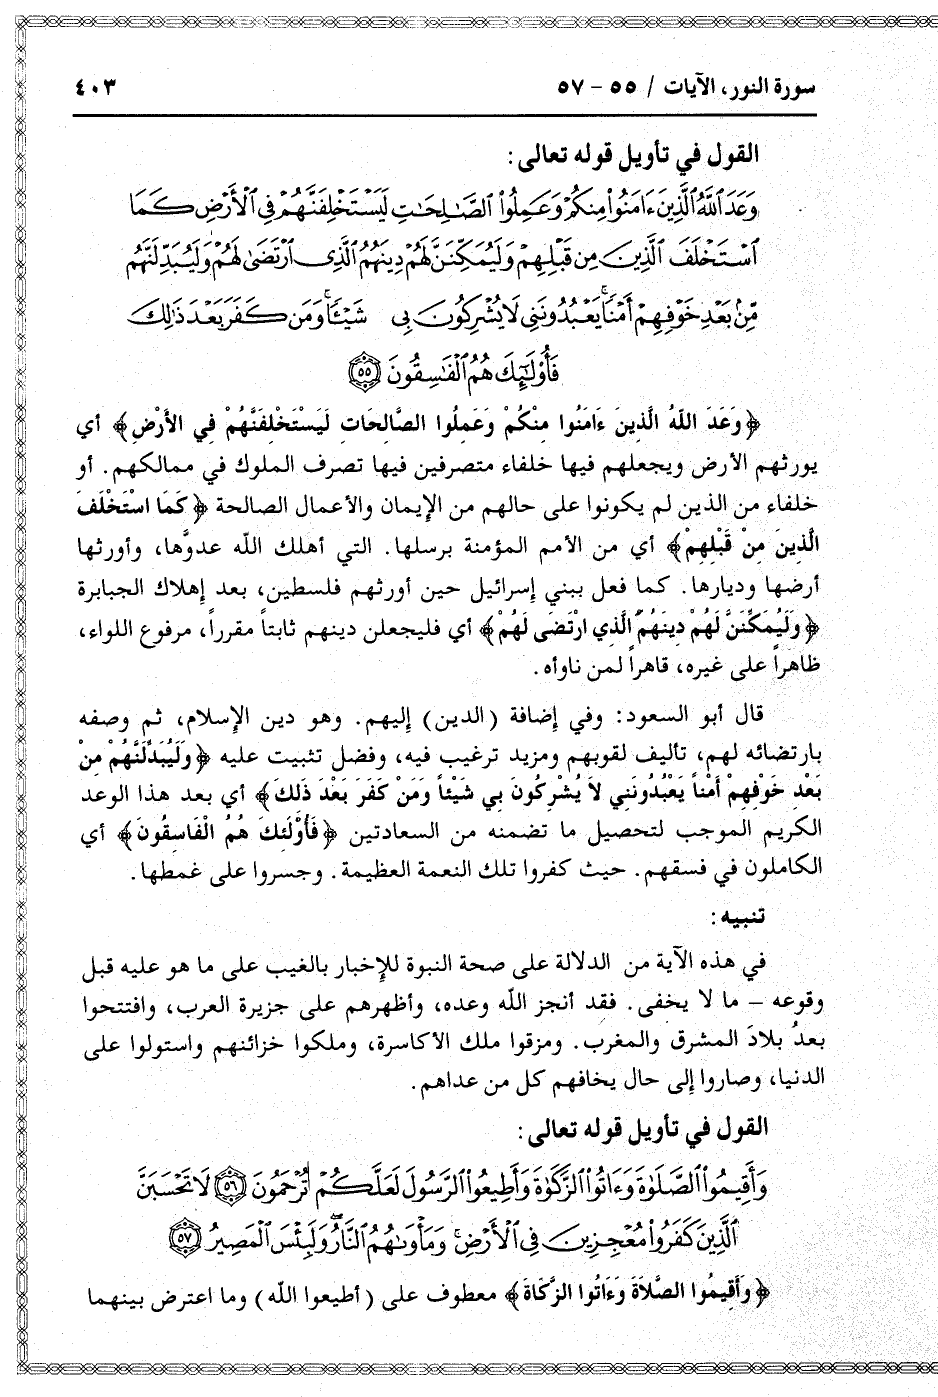 سورة النور، الآيات / ٥٥ - ٥٧ ٤٠٣
القول في تأويل قوله تعالى:
وَعَدَ ٱللَّهُ ٱلَّذِينَ ءَامَنُوا۟ مِنكُمْ وَعَمِلُوا۟ ٱلصَّـٰلِحَـٰتِ لَيَسْتَخْلِفَنَّهُمْ فِى ٱلْأَرْضِ كَمَا
ٱسْتَخْلَفَ ٱلَّذِينَ مِن قَبْلِهِمْ وَلَيُمَكِّنَنَّ لَهُمْ دِينَهُمُ ٱلَّذِى ٱرْتَضَىٰ لَهُمْ وَلَيُبَدِّلَنَّهُم
مِّنۢ بَعْدِ خَوْفِهِمْ أَمْنًا ۚ يَعْبُدُونَنِى لَا يُشْرِكُونَ بِى شَيْـًٔا ۚ وَمَن كَفَرَ بَعْدَ ذَٰلِكَ
فَأُو۟لَـٰٓئِكَ هُمُ ٱلْفَـٰسِقُونَ ٥٥
﴿وَعَدَ اللَّهُ الَّذِينَ ءَامَنُوا مِنْكُمْ وَعَمِلُوا الصَّالِحَاتِ لَيَسْتَخْلِفَنَّهُمْ فِي الأَرْضِ﴾ أي
يورثهم الأرض ويجعلهم فيها خلفاء متصرفين فيها تصرف الملوك في ممالكهم. أو
خلفاء من الذين لم يكونوا على حالهم من الإيمان والأعمال الصالحة ﴿كَمَا اسْتَخْلَفَ
الَّذِينَ مِنْ قَبْلِهِمْ﴾ أي من الأمم المؤمنة برسلها. التي أهلك الله عدوَّها، وأورثها
أرضها وديارها. كما فعل ببني إسرائيل حين أورثهم فلسطين، بعد إهلاك الجبابرة
﴿وَلَيُمَكِّنَنَّ لَهُمْ دِينَهُمُ الَّذِي ارْتَضَى لَهُمْ﴾ أي فليجعلن دينهم ثابتاً مقرراً، مرفوع اللواء،
ظاهراً على غيره، قاهراً لمن ناوأه.
قال أبو السعود: وفي إضافة (الدين) إليهم. وهو دين الإسلام، ثم وصفه
بارتضائه لهم، تأليف لقوبهم ومزيد ترغيب فيه، وفضل تثبيت عليه ﴿وَلَيُبَدِّلَنَّهُمْ مِنْ
بَعْدِ خَوْفِهِمْ أَمْناً يَعْبُدُونَنِي لاَ يُشْرِكُونَ بِي شَيْئاً وَمَنْ كَفَرَ بَعْدَ ذَلِكَ﴾ أي بعد هذا الوعد
الكريم الموجب لتحصيل ما تضمنه من السعادتين ﴿فَأُوْلَئِكَ هُمُ الْفَاسِقُونَ﴾ أي
الكاملون في فسقهم. حيث كفروا تلك النعمة العظيمة. وجسروا على غمطها.
تنبيه:
في هذه الآية من الدلالة على صحة النبوة للإخبار بالغيب على ما هو عليه قبل
وقوعه – ما لا يخفى. فقد أنجز الله وعده، وأظهرهم على جزيرة العرب، وافتتحوا
بعدُ بلادَ المشرق والمغرب. ومزقوا ملك الأكاسرة، وملكوا خزائنهم واستولوا على
الدنيا، وصاروا إلى حال يخافهم كل من عداهم.
القول في تأويل قوله تعالى:
وَأَقِيمُوا۟ ٱلصَّلَوٰةَ وَءَاتُوا۟ ٱلزَّكَوٰةَ وَأَطِيعُوا۟ ٱلرَّسُولَ لَعَلَّكُمْ تُرْحَمُونَ ٥٦ لَا تَحْسَبَنَّ
ٱلَّذِينَ كَفَرُوا۟ مُعْجِزِينَ فِى ٱلْأَرْضِ ۚ وَمَأْوَىٰهُمُ ٱلنَّارُ ۖ وَلَبِئْسَ ٱلْمَصِيرُ ٥٧
﴿وَأَقِيمُوا الصَّلاَةَ وَءَاتُوا الزَّكَاةَ﴾ معطوف على (أطيعوا الله) وما اعترض بينهما